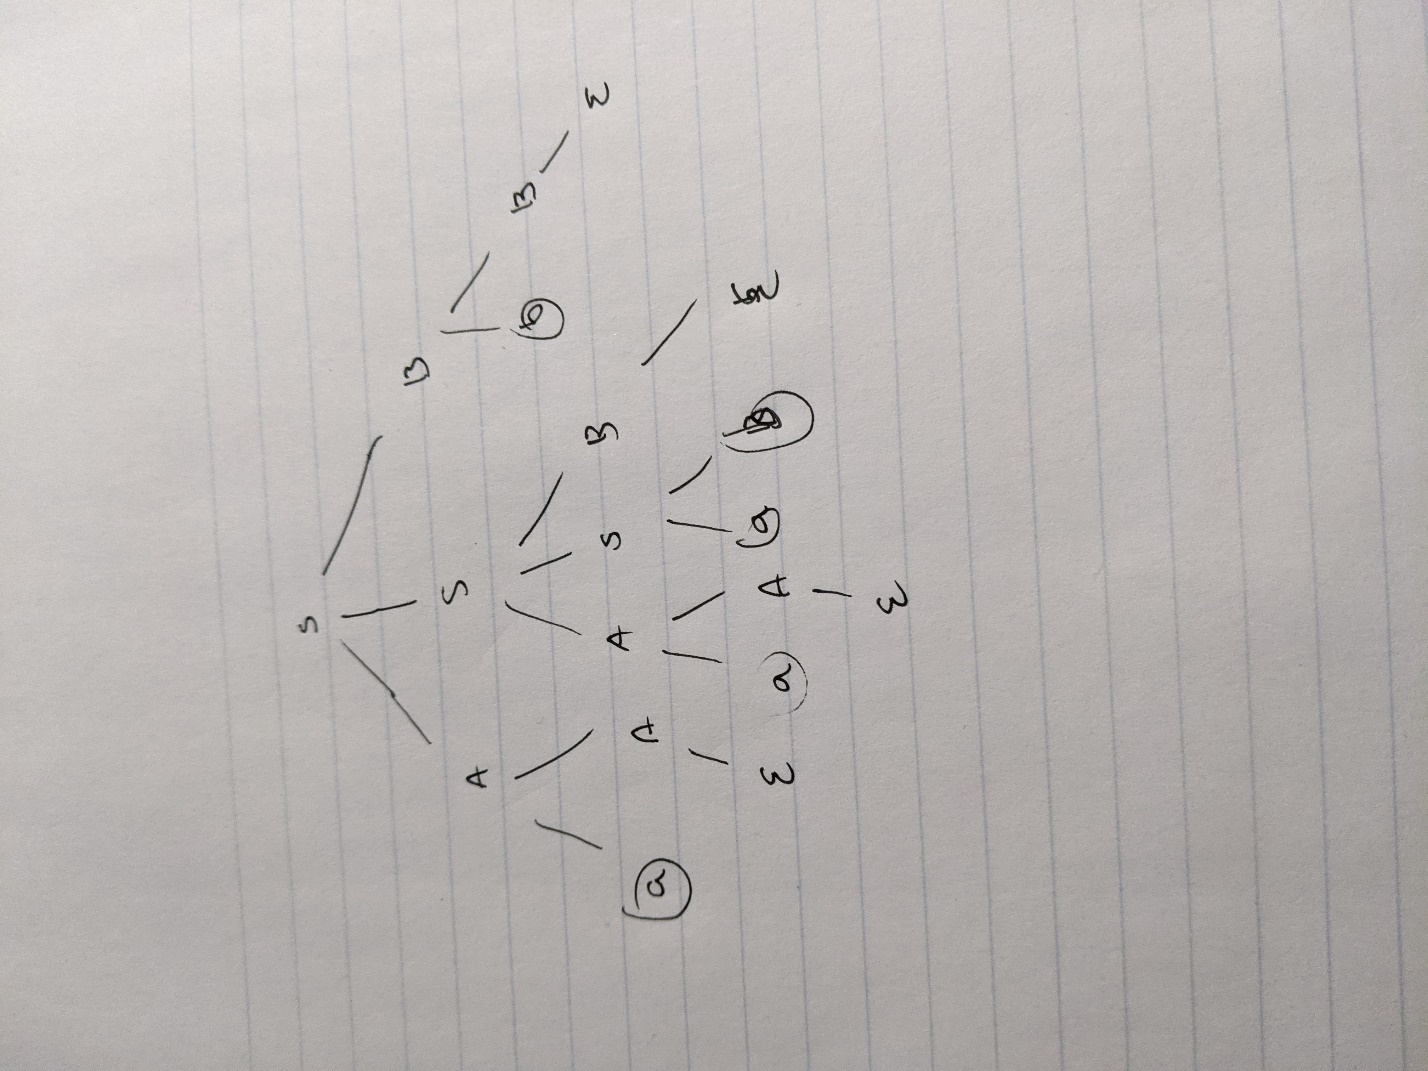 S
A S B
a A A S B b B
ε a A a ε
ε